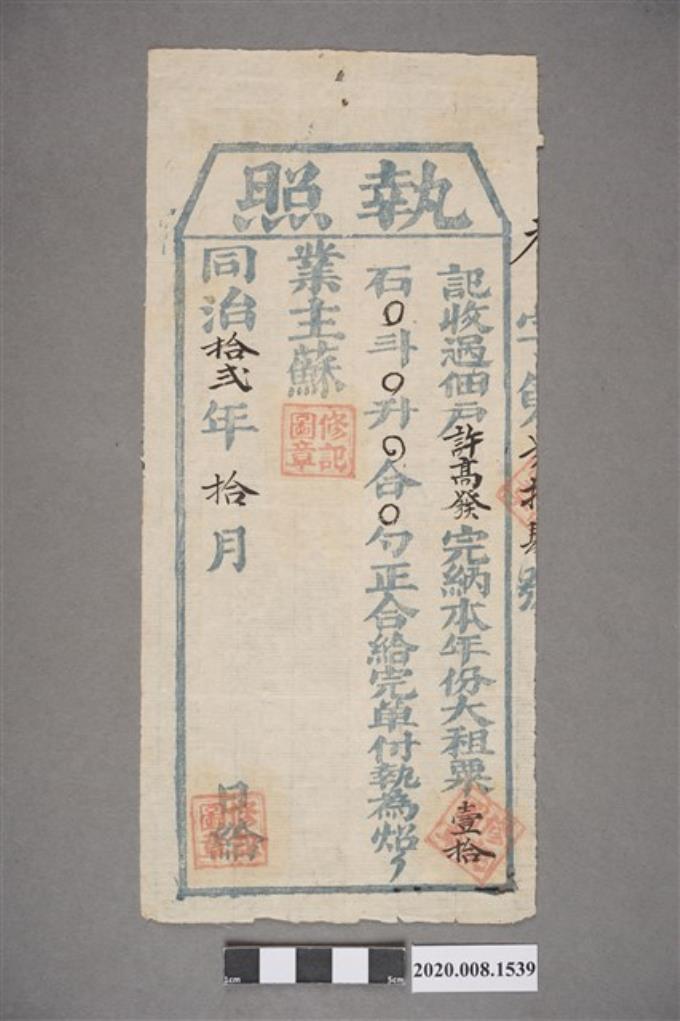 執照
字第貳拾肆號
記收過佃戶許高發完納本年份大租粟壹拾
石0斗0升0合0勺正合給完單付執為炤
業主蘇
修記圖章
同治拾弍年拾月
日給
1cm
5cm
2020.008.1539